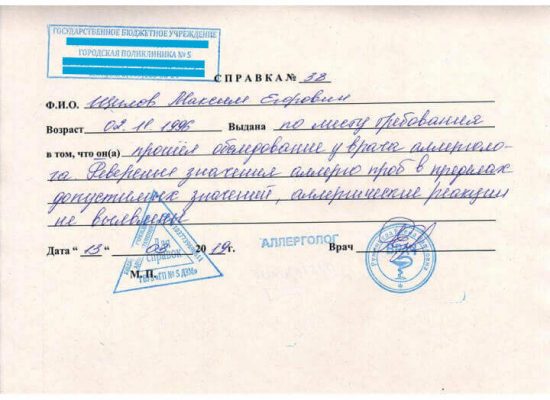 ГОСУДАРСТВЕННОЕ БЮДЖЕТНОЕ УЧРЕЖДЕНИЕ
ГОРОДСКАЯ ПОЛИКЛИНИКА № 5
СПРАВКА № 38
Ф.И.О. Максим Егорович
Возраст 02.11.1996 Выдана по месту требования
в том, что он(а) прошёл обследование у врача аллерголо-
га. значения аллерго проб в пределах
допустимых значений, аллергические реакции
не выявлены
Дата "13" 03 2019 г. АЛЛЕРГОЛОГ Врач
Для справок
ГБУЗ «ГП № 5 ДЗМ»
М. П.